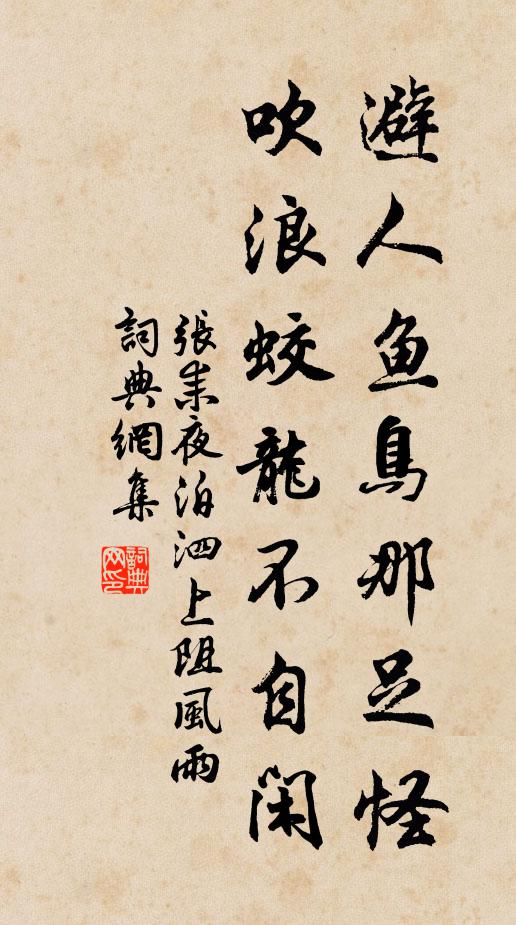 避人鱼鳥那足怪
吹浪蛟龍不自閑
張耒夜泊泗上阻風雨
詞典網集
詞典網印